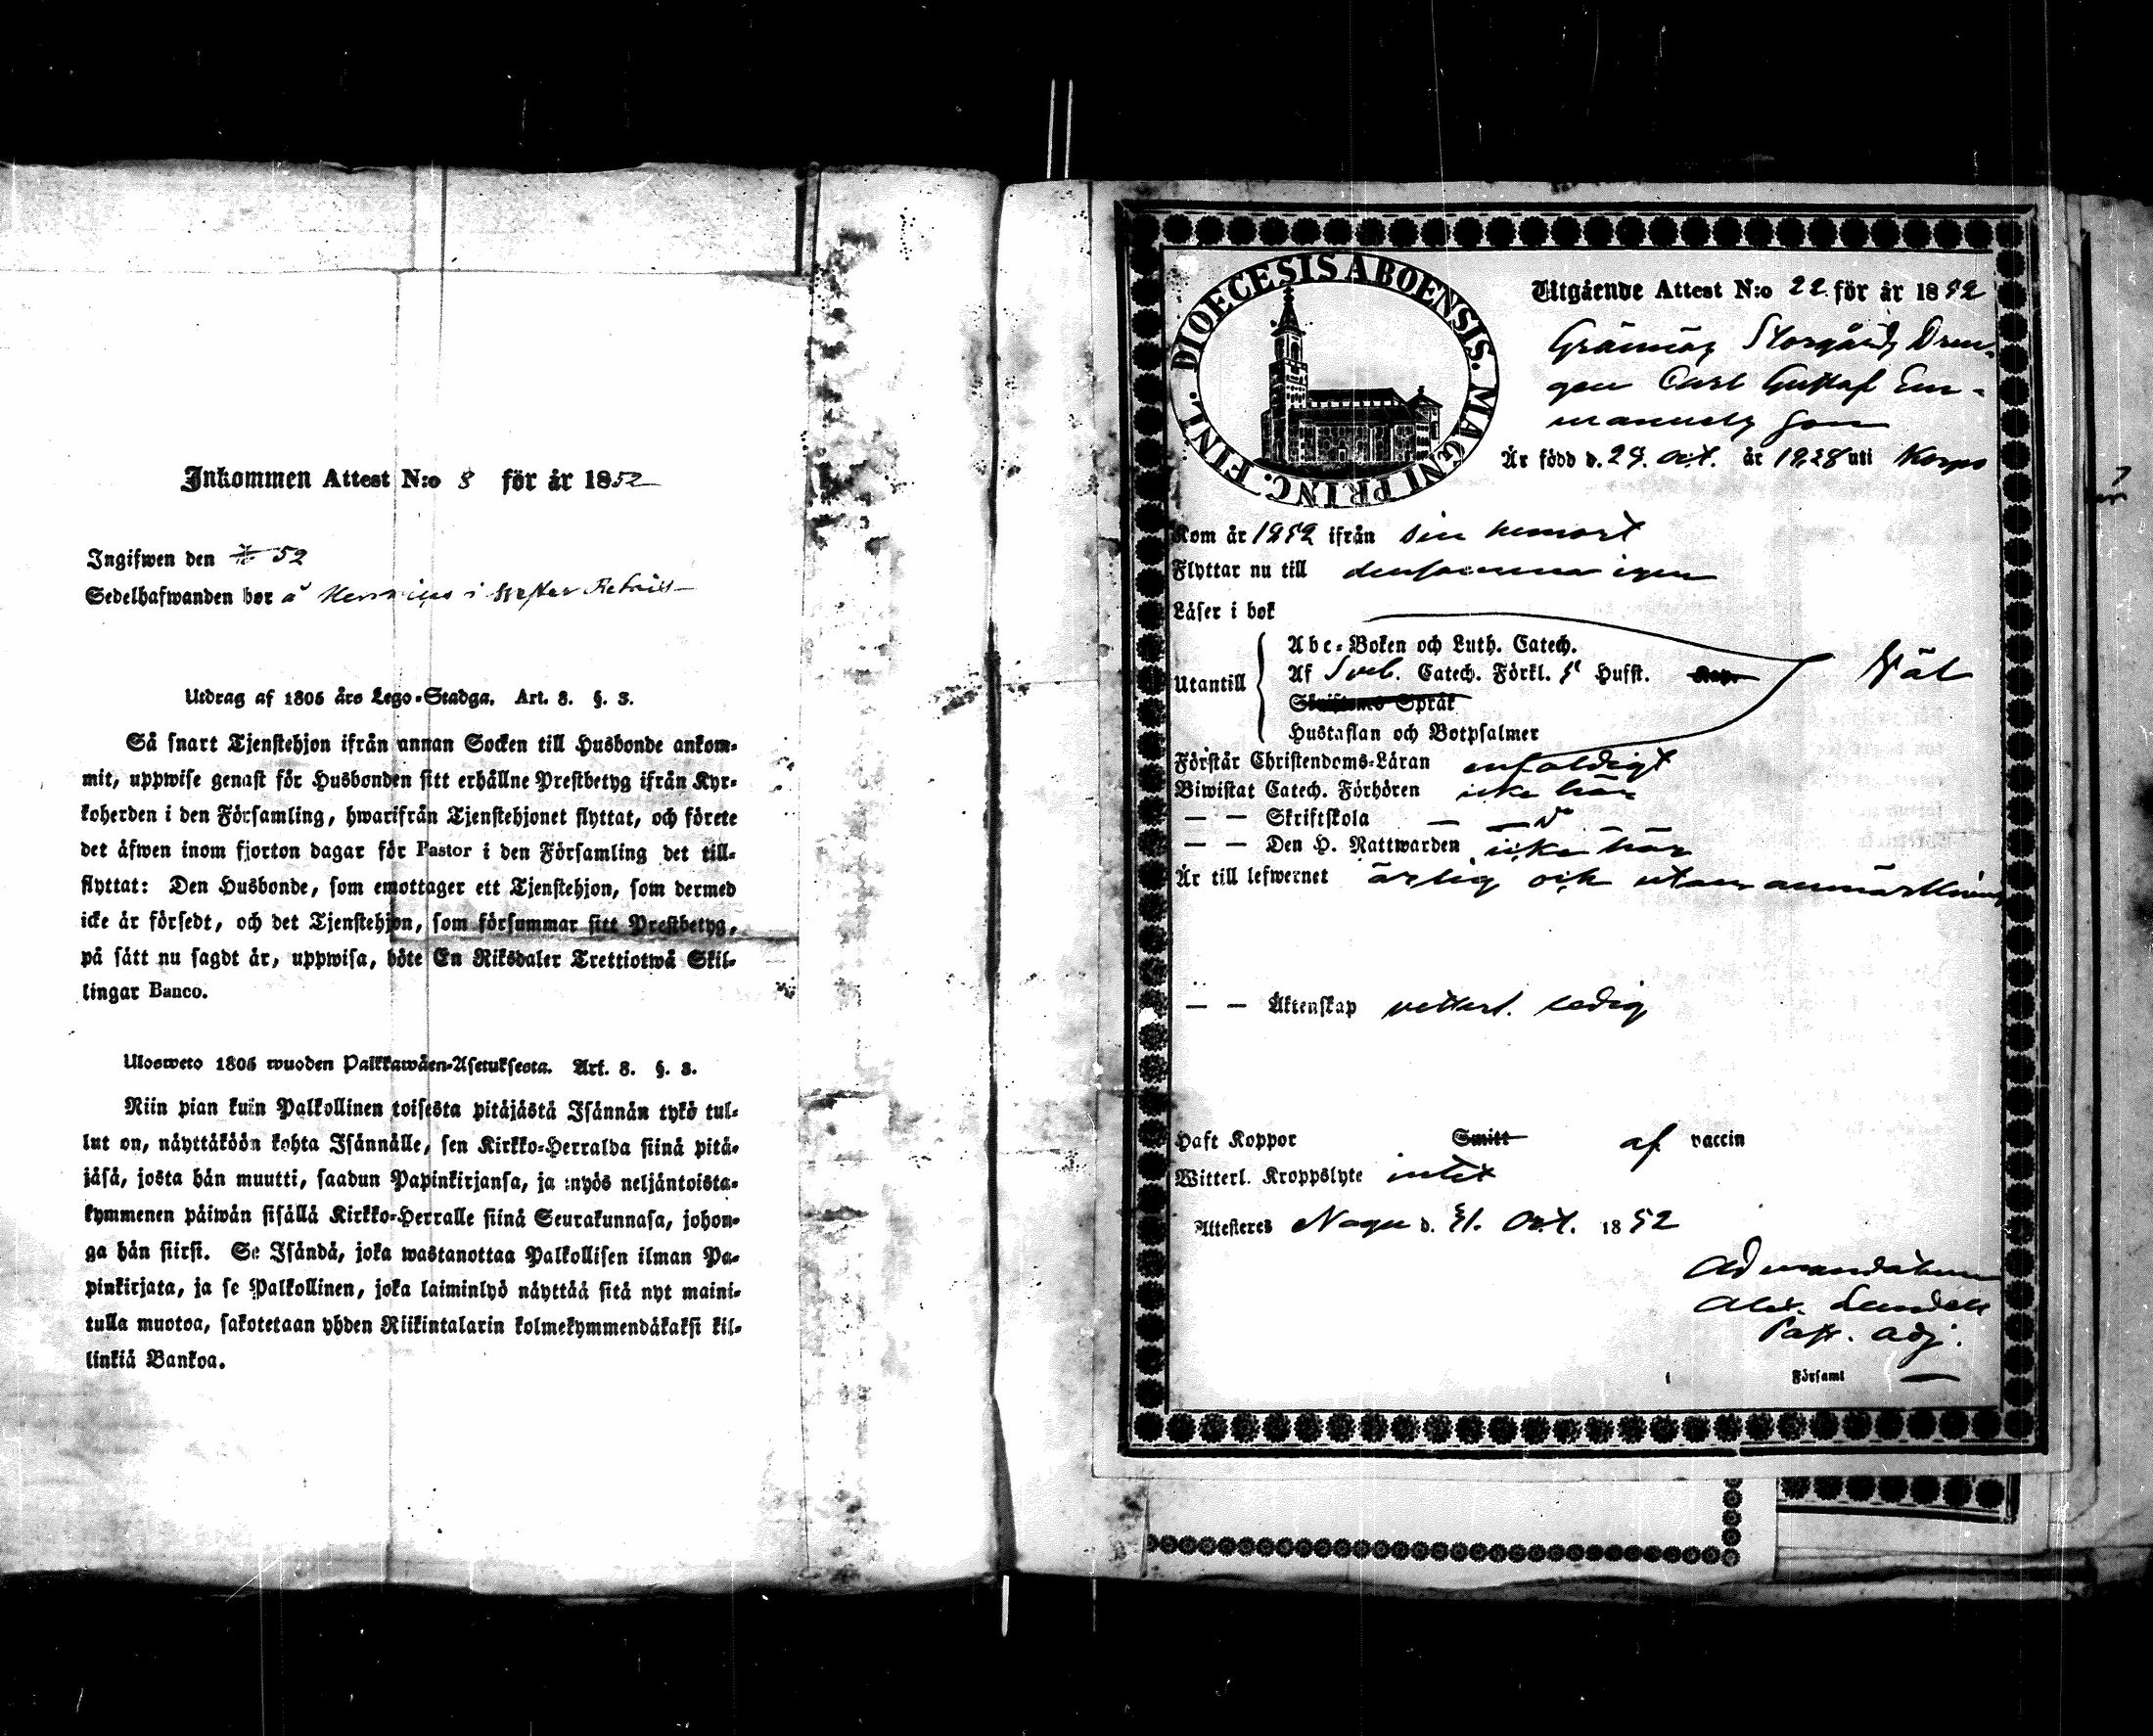 Inkommen Attest N:o 8 för år 1852
Ingifwen den 52
Sedelhafwanden bor å i Wester
Utdrag af 1805 års Lego-Stadga. Art. 8. §. 3.
Så snart Tjenstehjon ifrån annan Socken till Husbonde ankom-
mit, uppwise genast för Husbonden sitt erhållne Prestbetyg ifrån Kyr-
koherden i den Församling, hwarifrån Tjenstehjonet flyttat, och förete
det äfwen inom fjorton dagar för Pastor i den Församling det till-
flyttat: Den Husbonde, som emottager ett Tjenstehjon, som dermed
icke är försedt, och det Tjenstehjon, som försummar sitt Prestbetyg,
på sätt nu sagdt är, uppwisa, böte En Riksdaler Trettiotwå Skil-
lingar Banco.
Ulosweto 1805 wuoden Palkkawäen-Asetuksesta. Art. 8. §. 3.
Niin pian kuin Palkollinen toisesta pitäjästä Isännän tykö tul-
lut on, näyttäköön kohta Isännälle, sen Kirkko-Herralda siinä pitä-
jäsä, josta hän muutti, saadun Papinkirjansa, ja myös neljäntoista-
kymmenen päiwän sisällä Kirkko-Herralle siinä Seurakunnasa, johon-
ga hän siirsi. Se Isändä, joka wastanottaa Palkollisen ilman Pa-
pinkirjata, ja se Palkollinen, joka laiminlyö näyttää sitä nyt maini-
tulla muotoa, sakotetaan yhden Riikintalarin kolmekymmendäkaksi kil-
linkiä Bankoa.
DIOECESIS ABOENSIS. MAGNI PRINC. FINL.
Utgående Attest N:o 22 för år 1852
Gränmäs Storgårds Dren-
gen Carl Gustaf Em-
manuels son
Är född d. 29. Oct. år 1828 uti Korpo
Kom år 1852 ifrån sin hemort
Flyttar nu till densamma igen
Läser i bok
Utantill
Abc-Boken och Luth. Catech.
Af Sveb. Catech. Förkl. 5 Hufst.
Skriftens Språk
Hustaflan och Botpsalmer
Wäl
Förstår Christendoms-Läran enfaldigt
Biwistat Catech. Förhören icke här
— — Skriftskola — —
— — Den H. Nattwarden icke här
Är till lefwernet ärlig och utan anmärkning
— — Äktenskap vetterl. ledig
Haft Koppor Smitt af vaccin
Witterl. Kroppslyte intet
Attesteres Nagu d. 31. Oct. 1852
Ad mandatum
Alex. Lundell
Past. Adj.
Församl —